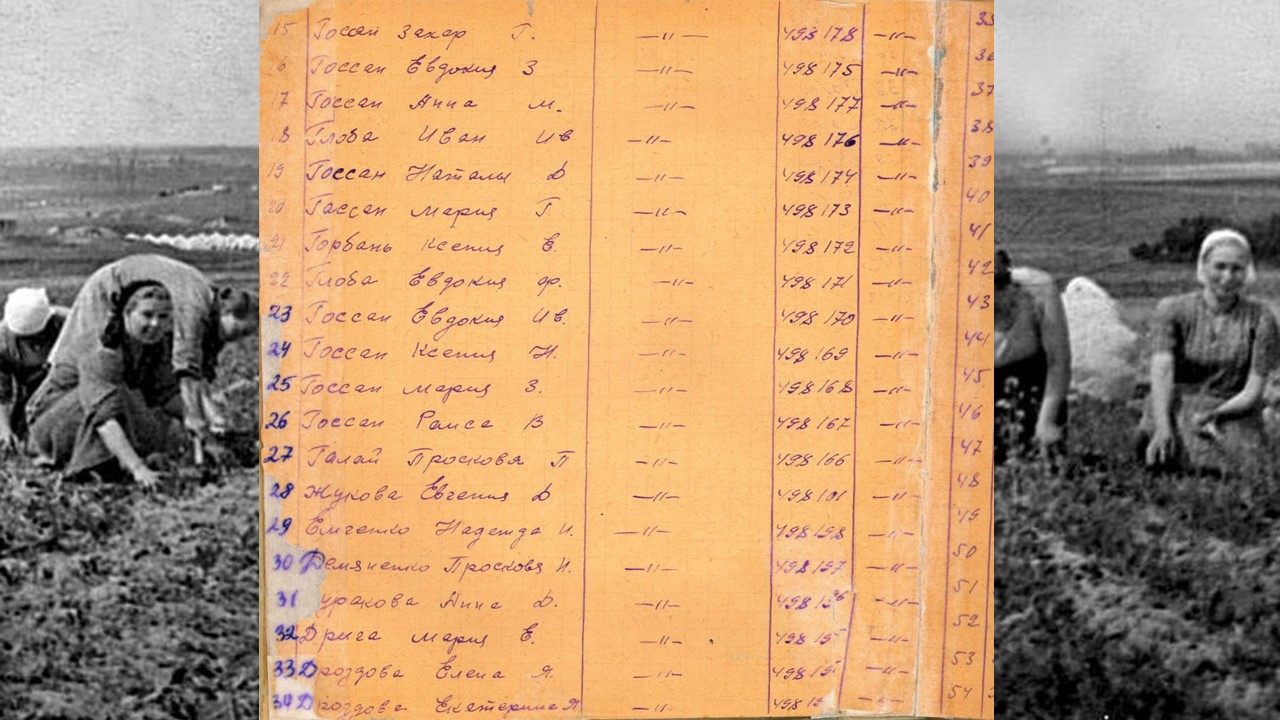 15 Госсан Захар Г. —〃— 498178 —〃— 35
16 Госсан Евдокия З —〃— 498175 —〃— 36
17 Госсан Анна М. —〃— 498177 —〃— 37
18 Глоба Иван Ив —〃— 498176 —〃— 38
19 Госсан Натали Д —〃— 498174 —〃— 39
20 Гассан Мария Г —〃— 498173 —〃— 40
21 Горбань Ксения Е. —〃— 498172 —〃— 41
22 Глоба Евдокия Ф. —〃— 498171 —〃— 42
23 Госсан Евдокия Ив. —〃— 498170 —〃— 43
24 Госсан Ксения Н. —〃— 498169 —〃— 44
25 Госсан Мария З. —〃— 498168 —〃— 45
26 Госсан Раиса В —〃— 498167 —〃— 46
27 Галай Просковя П —〃— 498166 —〃— 47
28 Жукова Евгения Д —〃— 498101 —〃— 48
29 Емченко Надежда И. —〃— 498198 —〃— 49
30 Демяненко Просковя И. —〃— 498197 —〃— 50
31 уракова Анна Д. —〃— 498 —〃— 51
32 Дрига Мария Е. —〃— 498 —〃— 52
33 Дроздова Елена Я. —〃— 498 —〃— 53
34 Дроздова Екатерина Я —〃— 498 —〃— 54